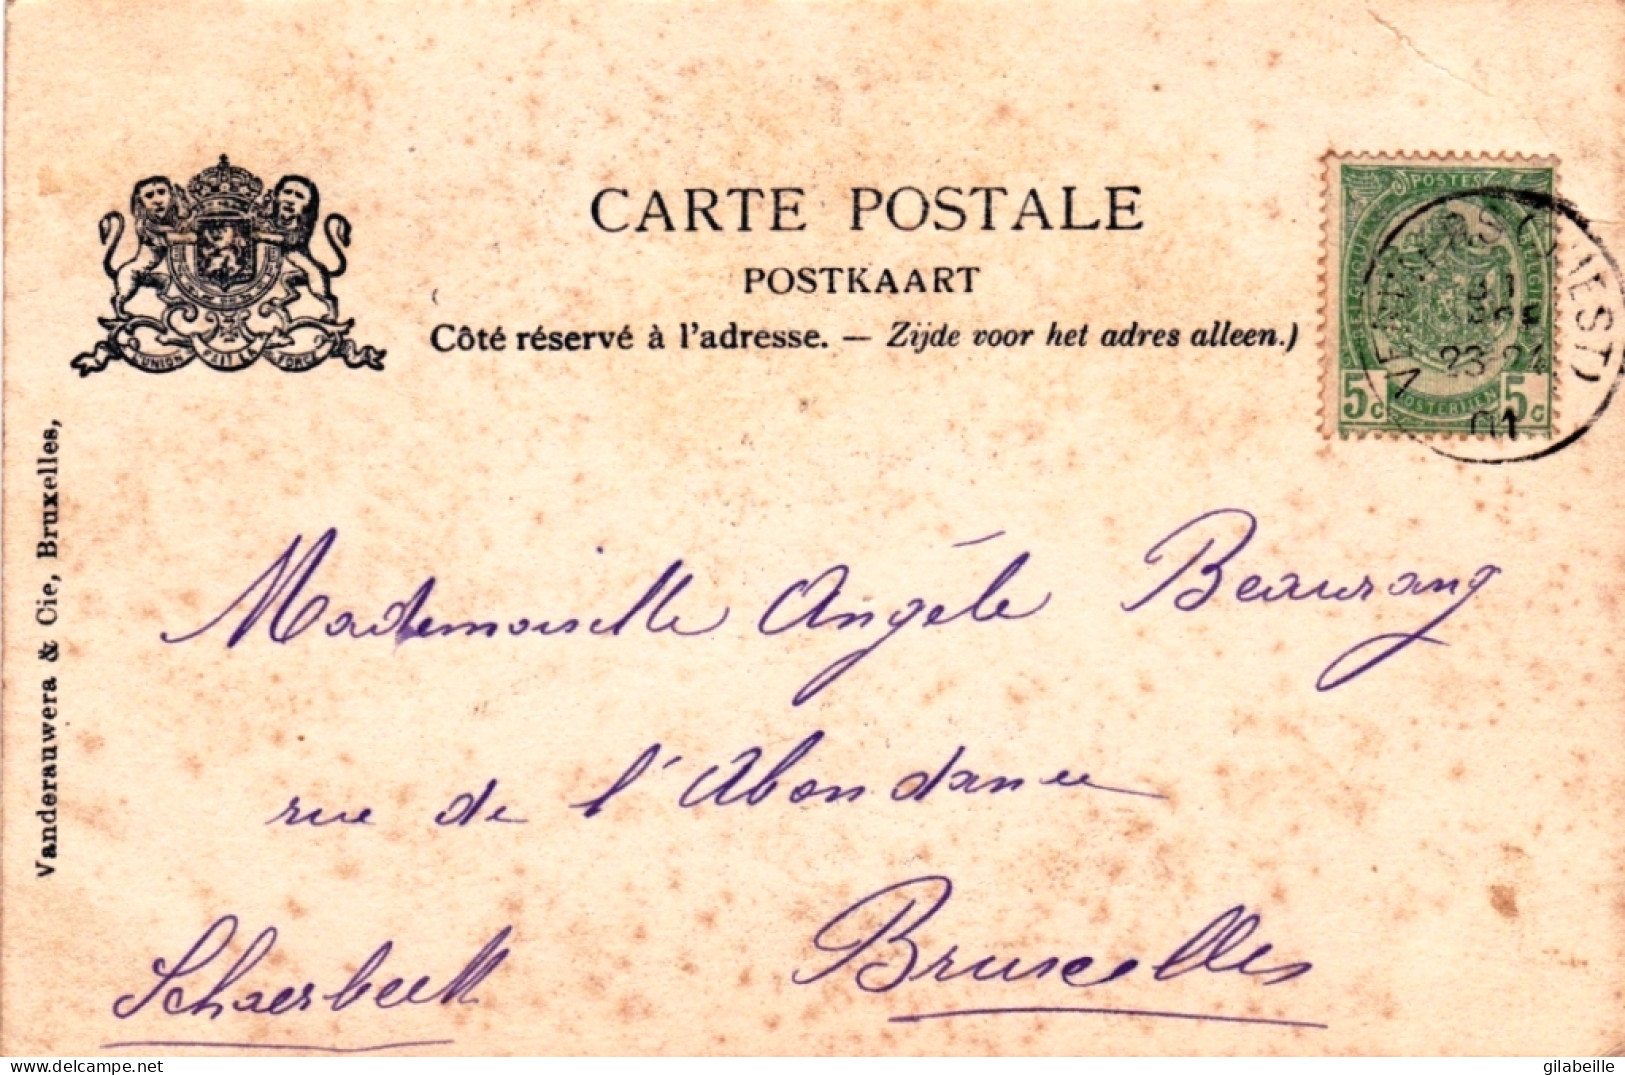 CARTE POSTALE
POSTKAART
Côté réservé à l'adresse. — Zijde voor het adres alleen.)
L'UNION FAIT LA FORCE
Vanderauwera & Cie, Bruxelles,
POSTES
BELGIQUE
BELGIE
POSTERIJEN
5c 5c
VERVIERS (OUEST)
23-24
01
Mademoiselle Angèle Beaurang
rue de l'Abondance
Bruxelles
Schaerbeek
gilabeille